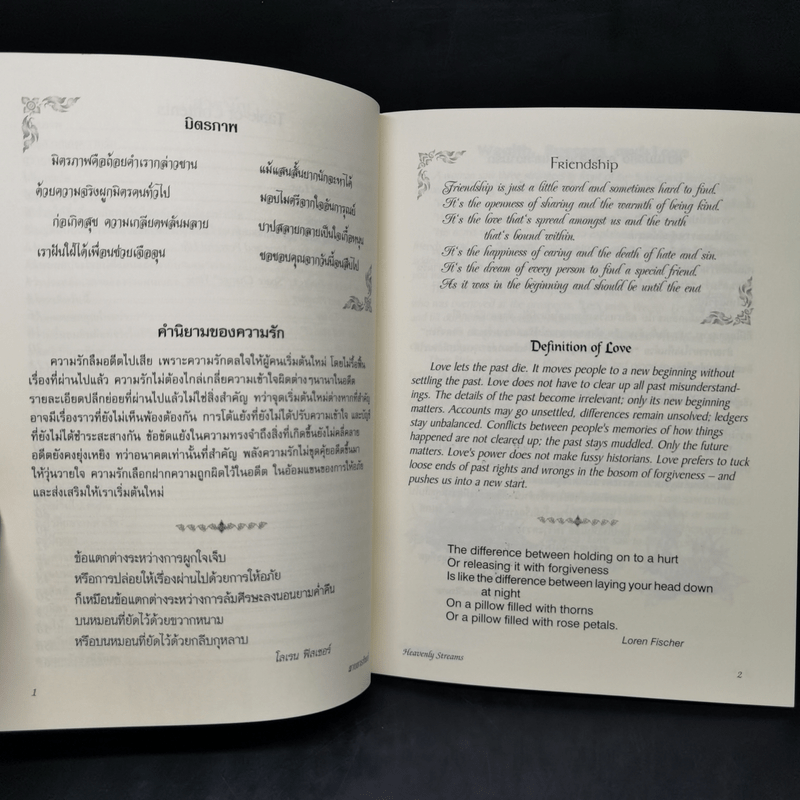 มิตรภาพ
มิตรภาพคือถ้อยคำเรากล่าวขาน แม้แสนสั้นยากนักจะหาได้
ด้วยความจริงผูกมิตรคนทั่วไป มอบไมตรีจากใจอันการุณย์
ก่อเกิดสุข ความเกลียดพลันมลาย บาปสลายกลายเป็นใจเกื้อหนุน
เราฝันใฝ่ได้เพื่อนช่วยเจือจุน ขอขอบคุณจากวันนี้จนสืบไป
คำนิยามของความรัก
ความรักลืมอดีตไปเสีย เพราะความรักดลใจให้ผู้คนเริ่มต้นใหม่ โดยไม่รื้อฟื้น
เรื่องที่ผ่านไปแล้ว ความรักไม่ต้องไกล่เกลี่ยความเข้าใจผิดต่างๆนานาในอดีต
รายละเอียดปลีกย่อยที่ผ่านไปแล้วไม่ใช่สิ่งสำคัญ ทว่าจุดเริ่มต้นใหม่ต่างหากที่สำคัญ
อาจมีเรื่องราวที่ยังไม่เห็นพ้องต้องกัน การโต้แย้งที่ยังไม่ได้ปรับความเข้าใจ และบัญชี
ที่ยังไม่ได้ชำระสะสางกัน ข้อขัดแย้งในความทรงจำถึงสิ่งที่เกิดขึ้นยังไม่คลี่คลาย
อดีตยังคงยุ่งเหยิง ทว่าอนาคตเท่านั้นที่สำคัญ พลังความรักไม่ขุดคุ้ยอดีตขึ้นมา
ให้วุ่นวายใจ ความรักเลือกฝากความถูกผิดไว้ในอดีต ในอ้อมแขนของการให้อภัย
และส่งเสริมให้เราเริ่มต้นใหม่
ข้อแตกต่างระหว่างการผูกใจเจ็บ
หรือการปล่อยให้เรื่องผ่านไปด้วยการให้อภัย
ก็เหมือนข้อแตกต่างระหว่างการล้มศีรษะลงนอนยามค่ำคืน
บนหมอนที่ยัดไว้ด้วยขวากหนาม
หรือบนหมอนที่ยัดไว้ด้วยกลีบกุหลาบ
โลเรน ฟิสเชอร์
1
Friendship
Friendship is just a little word and sometimes hard to find.
It's the openness of sharing and the warmth of being kind.
It's the love that's spread amongst us and the truth
that's bound within.
It's the happiness of caring and the death of hate and sin.
It's the dream of every person to find a special friend.
As it was in the beginning and should be until the end
Definition of Love
Love lets the past die. It moves people to a new beginning without
settling the past. Love does not have to clear up all past misunderstand-
ings. The details of the past become irrelevant; only its new beginning
matters. Accounts may go unsettled, differences remain unsolved; ledgers
stay unbalanced. Conflicts between people's memories of how things
happened are not cleared up; the past stays muddled. Only the future
matters. Love's power does not make fussy historians. Love prefers to tuck
loose ends of past rights and wrongs in the bosom of forgiveness – and
pushes us into a new start.
The difference between holding on to a hurt
Or releasing it with forgiveness
Is like the difference between laying your head down
at night
On a pillow filled with thorns
Or a pillow filled with rose petals.
Loren Fischer
Heavenly Streams
2